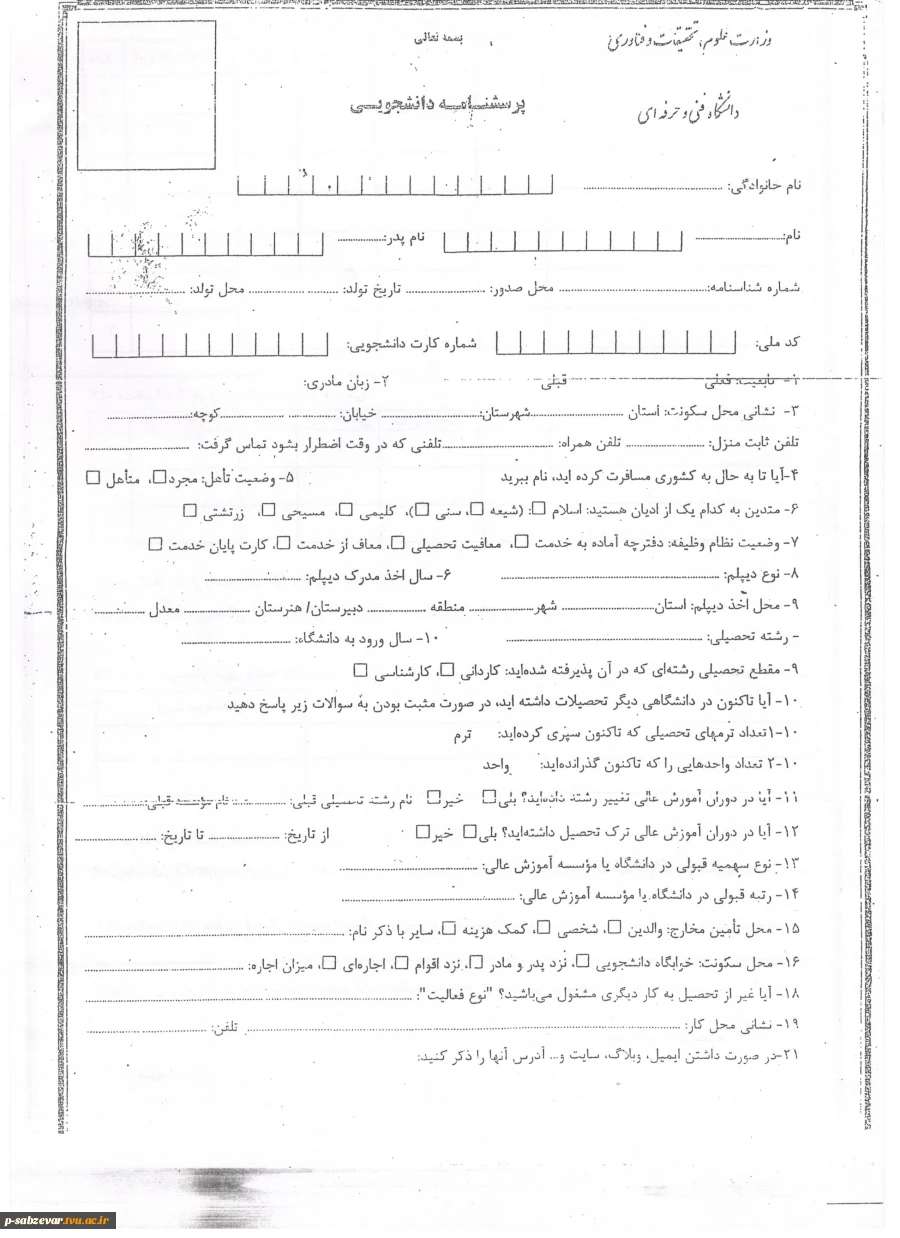 بسمه تعالی
وزارت علوم، تحقیقات و فناوری
پرسشنامه دانشجویی
دانشگاه فنی و حرفه ای
نام خانوادگی:
نام: نام پدر:
شماره شناسنامه: محل صدور: تاریخ تولد: محل تولد:
کد ملی: شماره کارت دانشجویی:
۱- تابعیت: فعلی قبلی ۲- زبان مادری:
۳- نشانی محل سکونت: استان شهرستان: خیابان: کوچه:
تلفن ثابت منزل: تلفن همراه: تلفنی که در وقت اضطرار بشود تماس گرفت:
۴-آیا تا به حال به کشوری مسافرت کرده اید، نام ببرید ۵- وضعیت تأهل: مجرد□، متأهل □
۶- متدین به کدام یک از ادیان هستید: اسلام □: (شیعه □، سنی □)، کلیمی □، مسیحی □، زرتشتی □
۷- وضعیت نظام وظیفه: دفترچه آماده به خدمت □، معافیت تحصیلی □، معاف از خدمت □، کارت پایان خدمت □
۸- نوع دیپلم: ۶- سال اخذ مدرک دیپلم:
۹- محل اخذ دیپلم: استان شهر منطقه دبیرستان/ هنرستان معدل
- رشته تحصیلی: ۱۰- سال ورود به دانشگاه:
۹- مقطع تحصیلی رشته‌ای که در آن پذیرفته شده‌اید: کاردانی □، کارشناسی □
۱۰- آیا تاکنون در دانشگاهی دیگر تحصیلات داشته اید، در صورت مثبت بودن به سوالات زیر پاسخ دهید
۱-۱۰تعداد ترمهای تحصیلی که تاکنون سپری کرده‌اید: ترم
۲-۱۰ تعداد واحدهایی را که تاکنون گذرانده‌اید: واحد
۱۱- آیا در دوران آموزش عالی تغییر رشته داده‌اید؟ بلی□ خیر□ نام رشته تحصیلی قبلی: نام مؤسسه قبلی:
۱۲- آیا در دوران آموزش عالی ترک تحصیل داشته‌اید؟ بلی□ خیر□ از تاریخ: تا تاریخ:
۱۳- نوع سهمیه قبولی در دانشگاه یا مؤسسه آموزش عالی:
۱۴- رتبه قبولی در دانشگاه یا مؤسسه آموزش عالی:
۱۵- محل تأمین مخارج: والدین □، شخصی □، کمک هزینه □، سایر با ذکر نام:
۱۶- محل سکونت: خوابگاه دانشجویی □، نزد پدر و مادر □، نزد اقوام □، اجاره‌ای □، میزان اجاره:
۱۸- آیا غیر از تحصیل به کار دیگری مشغول می‌باشید؟ "نوع فعالیت":
۱۹- نشانی محل کار: تلفن:
۲۱-در صورت داشتن ایمیل، وبلاگ، سایت و... آدرس آنها را ذکر کنید:
p-sabzevar.tvu.ac.ir